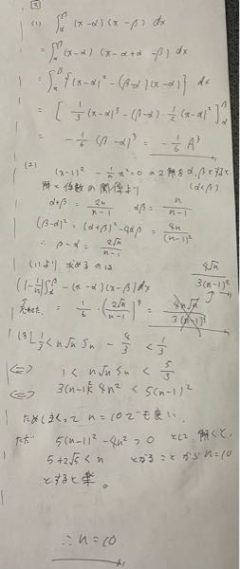 (1) ∫_α^β (x-α)(x-β) dx
= ∫_α^β (x-α)(x-α+α-β) dx
= ∫_α^β {(x-α)² - (β-α)(x-α)} dx
= [ 1/3 (x-α)³ - (β-α)・1/2 (x-α)² ]_α^β
= - 1/6 (β-α)³ = - 1/6 A³
(2) (x-1)² - 1/n x² = 0 の2解を α, β とすると
解と係数の関係より (α<β)
α+β = 2n/(n-1) αβ = n/(n-1)
(β-α)² = (α+β)² - 4αβ = 4n/(n-1)²
∴ β-α = 2√n/(n-1)
(1)より 求めるのは
(1-1/n) ∫_α^β -(x-α)(x-β) dx
= 1/6 (2√n/(n-1))³ = 4n√n/3(n-1)³
4√n/3(n-1)²
(3) 1/3 < n√n Sn - 4/3 < 1/3
⇔ 1 < n√n Sn < 5/3
⇔ 3(n-1)² 4n² < 5(n-1)²
n=10でも良い
ただ 5(n-1)² - 4n² > 0 として 解くと、
5+2√5 < n とかることから n=10
とすると楽。
∴ n=10